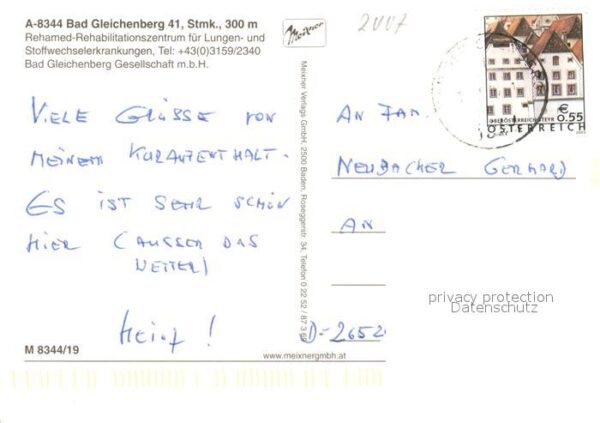 A-8344 Bad Gleichenberg 41, Stmk., 300 m
Rehamed-Rehabilitationszentrum für Lungen- und
Stoffwechselerkrankungen, Tel: +43(0)3159/2340
Bad Gleichenberg Gesellschaft m.b.H.
Meixner
2007
VIELE GRÜSSE VON
MEINEM KURAUFENTHALT.
ES IST SEHR SCHÖN
HIER (AUSSER DAS
WETTER)
Heinz !
M 8344/19
Meixner Verlags GmbH, 2500 Baden, Roseggerstr. 34, Telefon 0 22 52 / 87 3 69
www.meixnergmbh.at
€ 0.55
OBERÖSTERREICH STEYR
ÖSTERREICH
AN FAM.
NEUBACHER GERHARD
AN
D-2652
privacy protection
Datenschutz